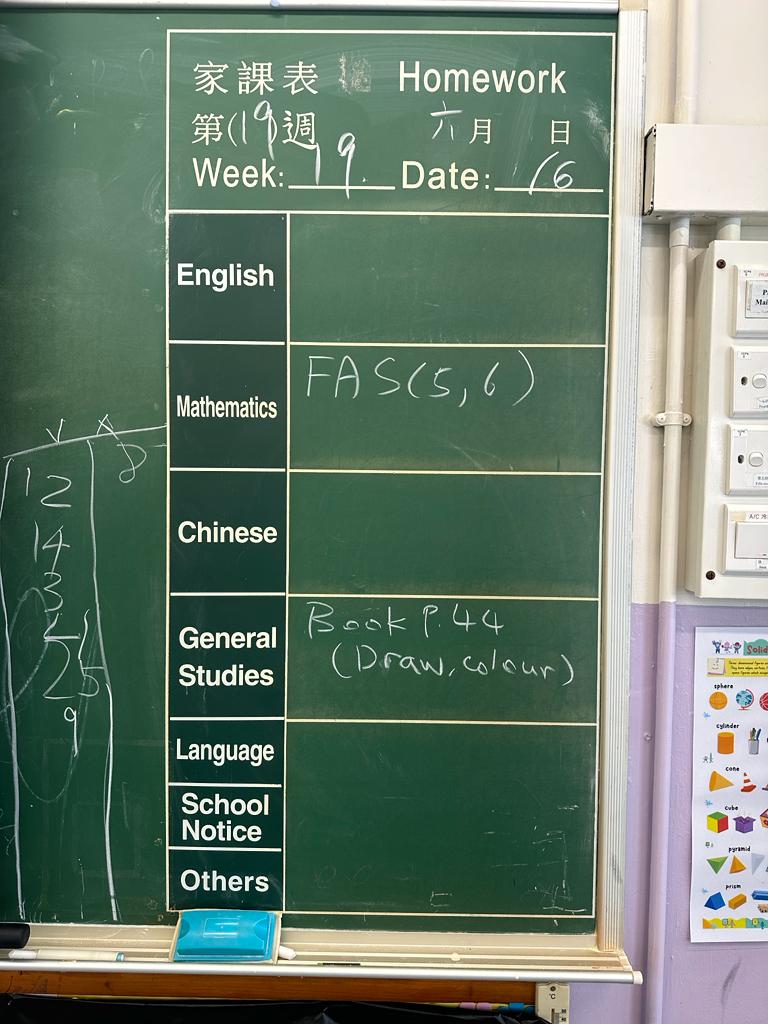 家課表 Homework
第(19)週 六月 日
Week: 19. Date: 16
English
Mathematics FAS(5,6)
Chinese
General Studies
Book P.44
(Draw, colour)
Language
School Notice
Others
V X
12
14
3
25
9
A/C
Solid
sphere
cylinder
cone
cube
pyramid
prism
°C